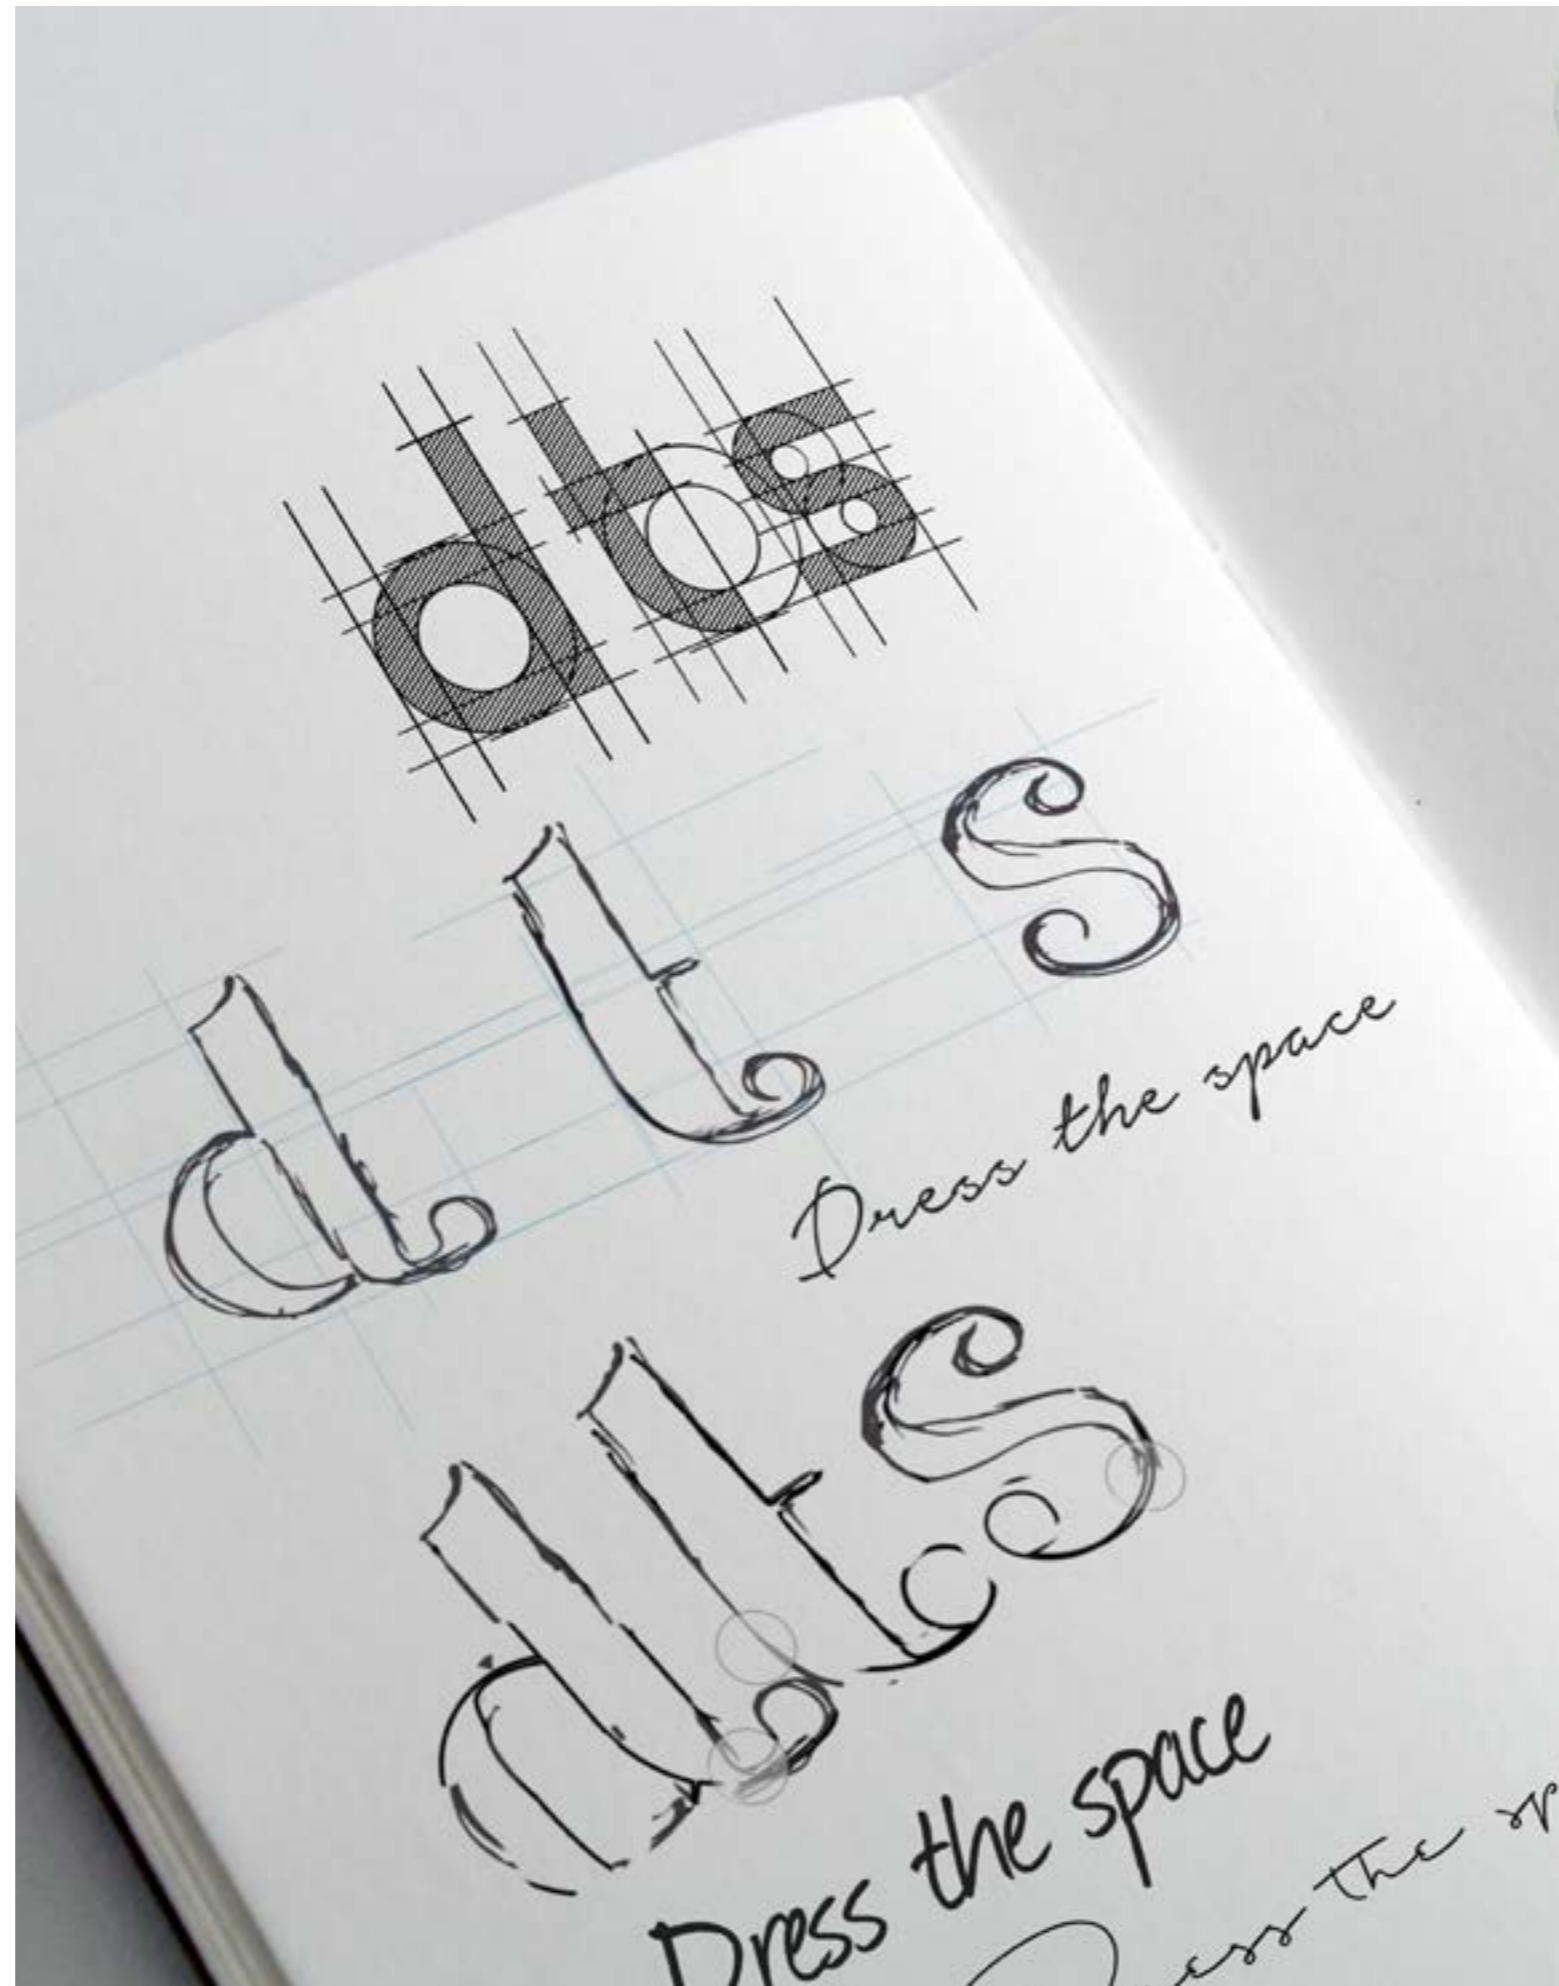 dts
d t s
Dress the space
dts
Dress the space
the